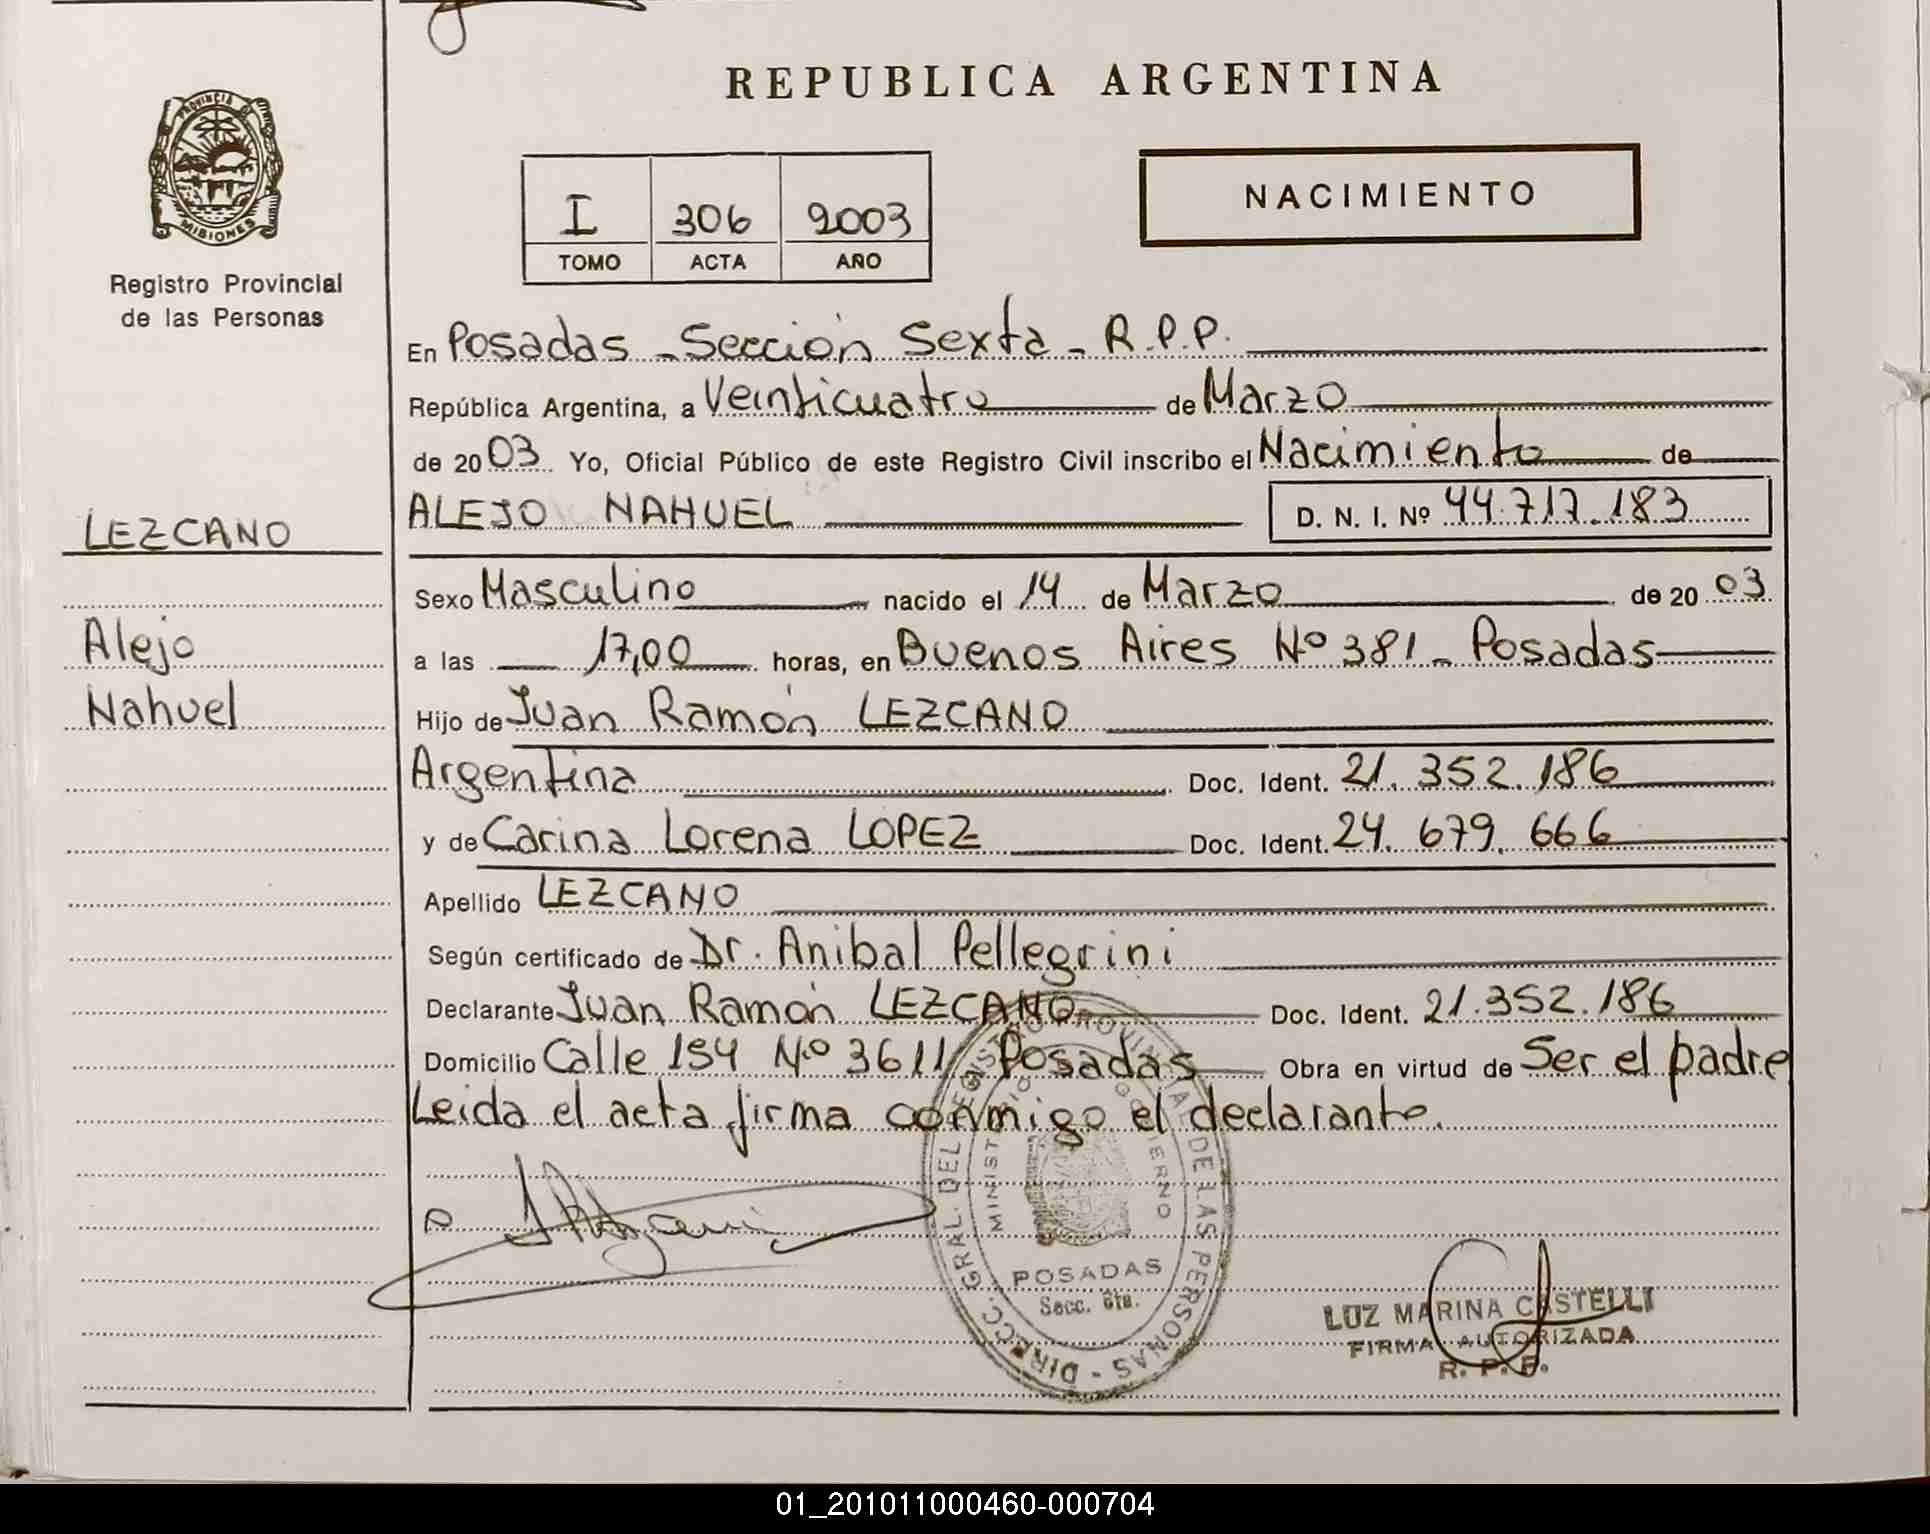 REPUBLICA ARGENTINA
PROVINCIA DE
MISIONES
Registro Provincial
de las Personas
I 306 2003
TOMO ACTA AÑO
NACIMIENTO
En Posadas - Sección Sexta - R.P.P.
República Argentina, a Veinticuatro de Marzo
de 2003 Yo, Oficial Público de este Registro Civil inscribo el Nacimiento de
LEZCANO
ALEJO NAHUEL D. N. I. Nº 44.717.183
Sexo Masculino nacido el 14 de Marzo de 2003
Alejo
a las 17,00 horas, en Buenos Aires Nº 381 - Posadas
Nahuel
Hijo de Juan Ramón LEZCANO
Argentina Doc. Ident. 21.352.186
y de Carina Lorena LOPEZ Doc. Ident. 24.679.666
Apellido LEZCANO
Según certificado de Dr. Anibal Pellegrini
Declarante Juan Ramón LEZCANO Doc. Ident. 21.352.186
Domicilio Calle 154 Nº 3611 Posadas Obra en virtud de Ser el padre
Leida el acta firma conmigo el declarante.
DIRECC. GRAL. DEL REGISTRO PROVINCIAL DE LAS PERSONAS
MINISTERIO GOBIERNO
POSADAS
Secc. 6ta.
LUZ MARINA CASTELLI
FIRMA AUTORIZADA
R. P. P.
01_201011000460-000704